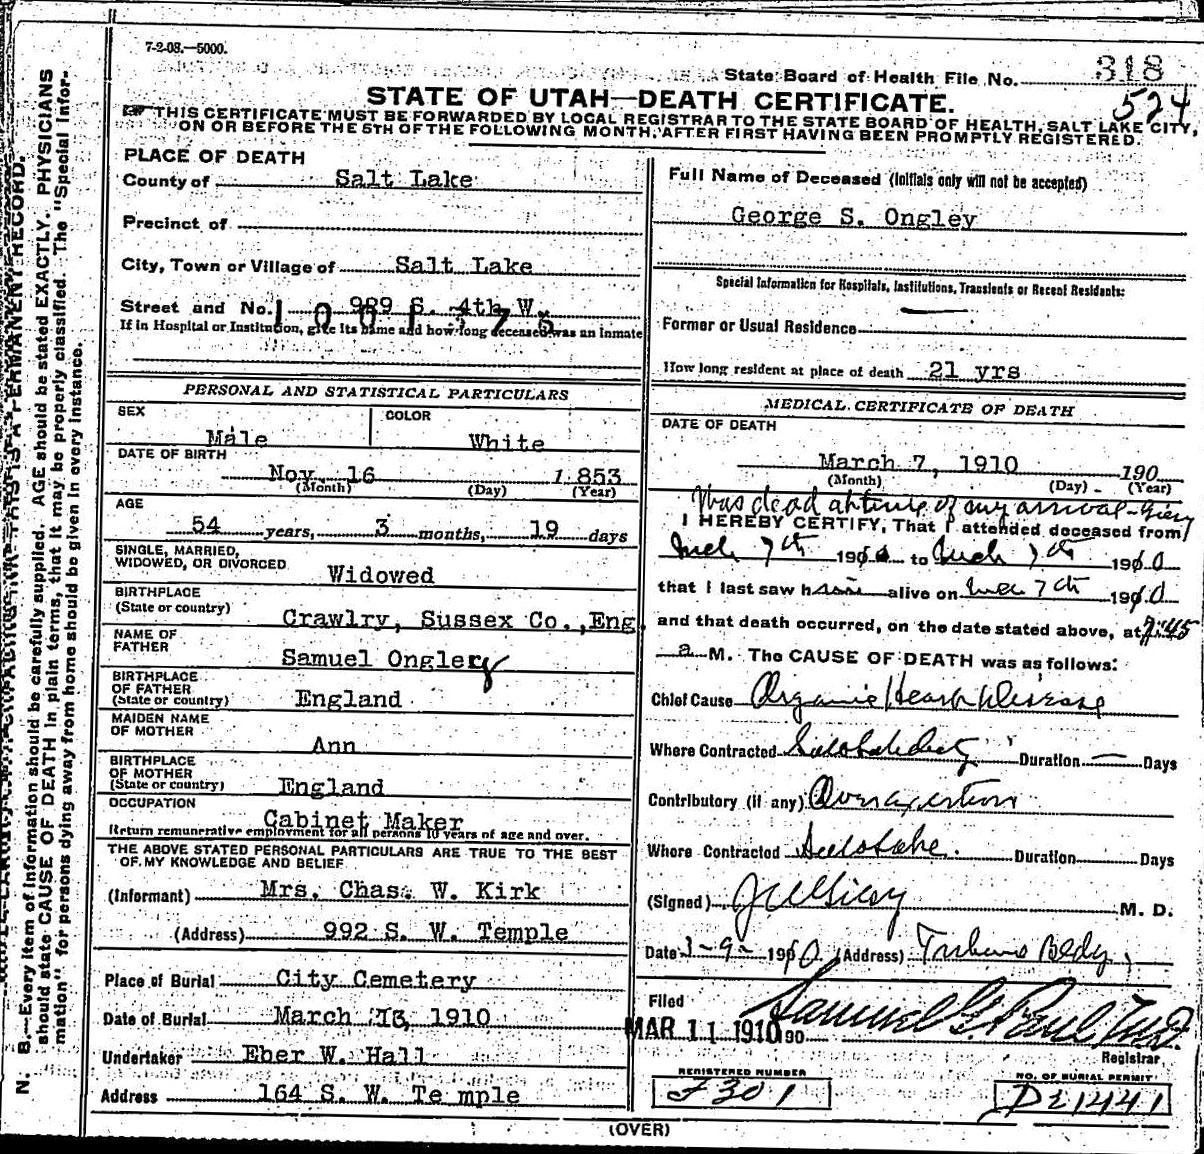 7-2-08.—5000.
State Board of Health File No. 318
524
STATE OF UTAH—DEATH CERTIFICATE.
THIS CERTIFICATE MUST BE FORWARDED BY LOCAL REGISTRAR TO THE STATE BOARD OF HEALTH, SALT LAKE CITY,
ON OR BEFORE THE 5TH OF THE FOLLOWING MONTH, AFTER FIRST HAVING BEEN PROMPTLY REGISTERED.
N. B.—Every item of information should be carefully supplied. AGE should be stated EXACTLY. PHYSICIANS
should state CAUSE OF DEATH in plain terms, that it may be properly classified. The "Special Infor-
mation" for persons dying away from home should be given in every instance.
PLACE OF DEATH
County of Salt Lake
Precinct of
City, Town or Village of Salt Lake
Street and No. 989 S. 4th W.
If in Hospital or Institution, give its name and how long deceased was an inmate
PERSONAL AND STATISTICAL PARTICULARS
SEX Male COLOR White
DATE OF BIRTH
Nov. 16 1853
(Month) (Day) (Year)
AGE
54 years, 3 months, 19 days
SINGLE, MARRIED,
WIDOWED, OR DIVORCED Widowed
BIRTHPLACE
(State or country) Crawlry, Sussex Co., Eng.
NAME OF
FATHER Samuel Onglery
BIRTHPLACE
OF FATHER
(State or country) England
MAIDEN NAME
OF MOTHER Ann
BIRTHPLACE
OF MOTHER
(State or country) England
OCCUPATION
Cabinet Maker
Return remunerative employment for all persons 10 years of age and over.
THE ABOVE STATED PERSONAL PARTICULARS ARE TRUE TO THE BEST
OF MY KNOWLEDGE AND BELIEF
(Informant) Mrs. Chas. W. Kirk
(Address) 992 S. W. Temple
Place of Burial City Cemetery
Date of Burial March 13, 1910
Undertaker Eber W. Hall
Address 164 S. W. Temple
Full Name of Deceased (Initials only will not be accepted)
George S. Ongley
Special Information for Hospitals, Institutions, Transients or Recent Residents:
Former or Usual Residence
How long resident at place of death 21 yrs
MEDICAL CERTIFICATE OF DEATH
DATE OF DEATH
March 7, 1910 190
(Month) (Day) (Year)
Was dead at time of my arrival
I HEREBY CERTIFY, That I attended deceased from
Mch 7th 1910 to Mch 7th 1910
that I last saw him alive on Mch 7th 1910
and that death occurred, on the date stated above, at 7:45
a M. The CAUSE OF DEATH was as follows:
Chief Cause Organic Heart Disease
Where Contracted Salt Lake City Duration — Days
Contributory (if any) Over exertion
Where Contracted Salt Lake. Duration Days
(Signed) M. D.
Date 3-9- 1910 (Address)
Filed
MAR 11 1910 190 Samuel G. Paul M.D.
Registrar
REGISTERED NUMBER
J301
NO. OF BURIAL PERMIT
D21441
(OVER)